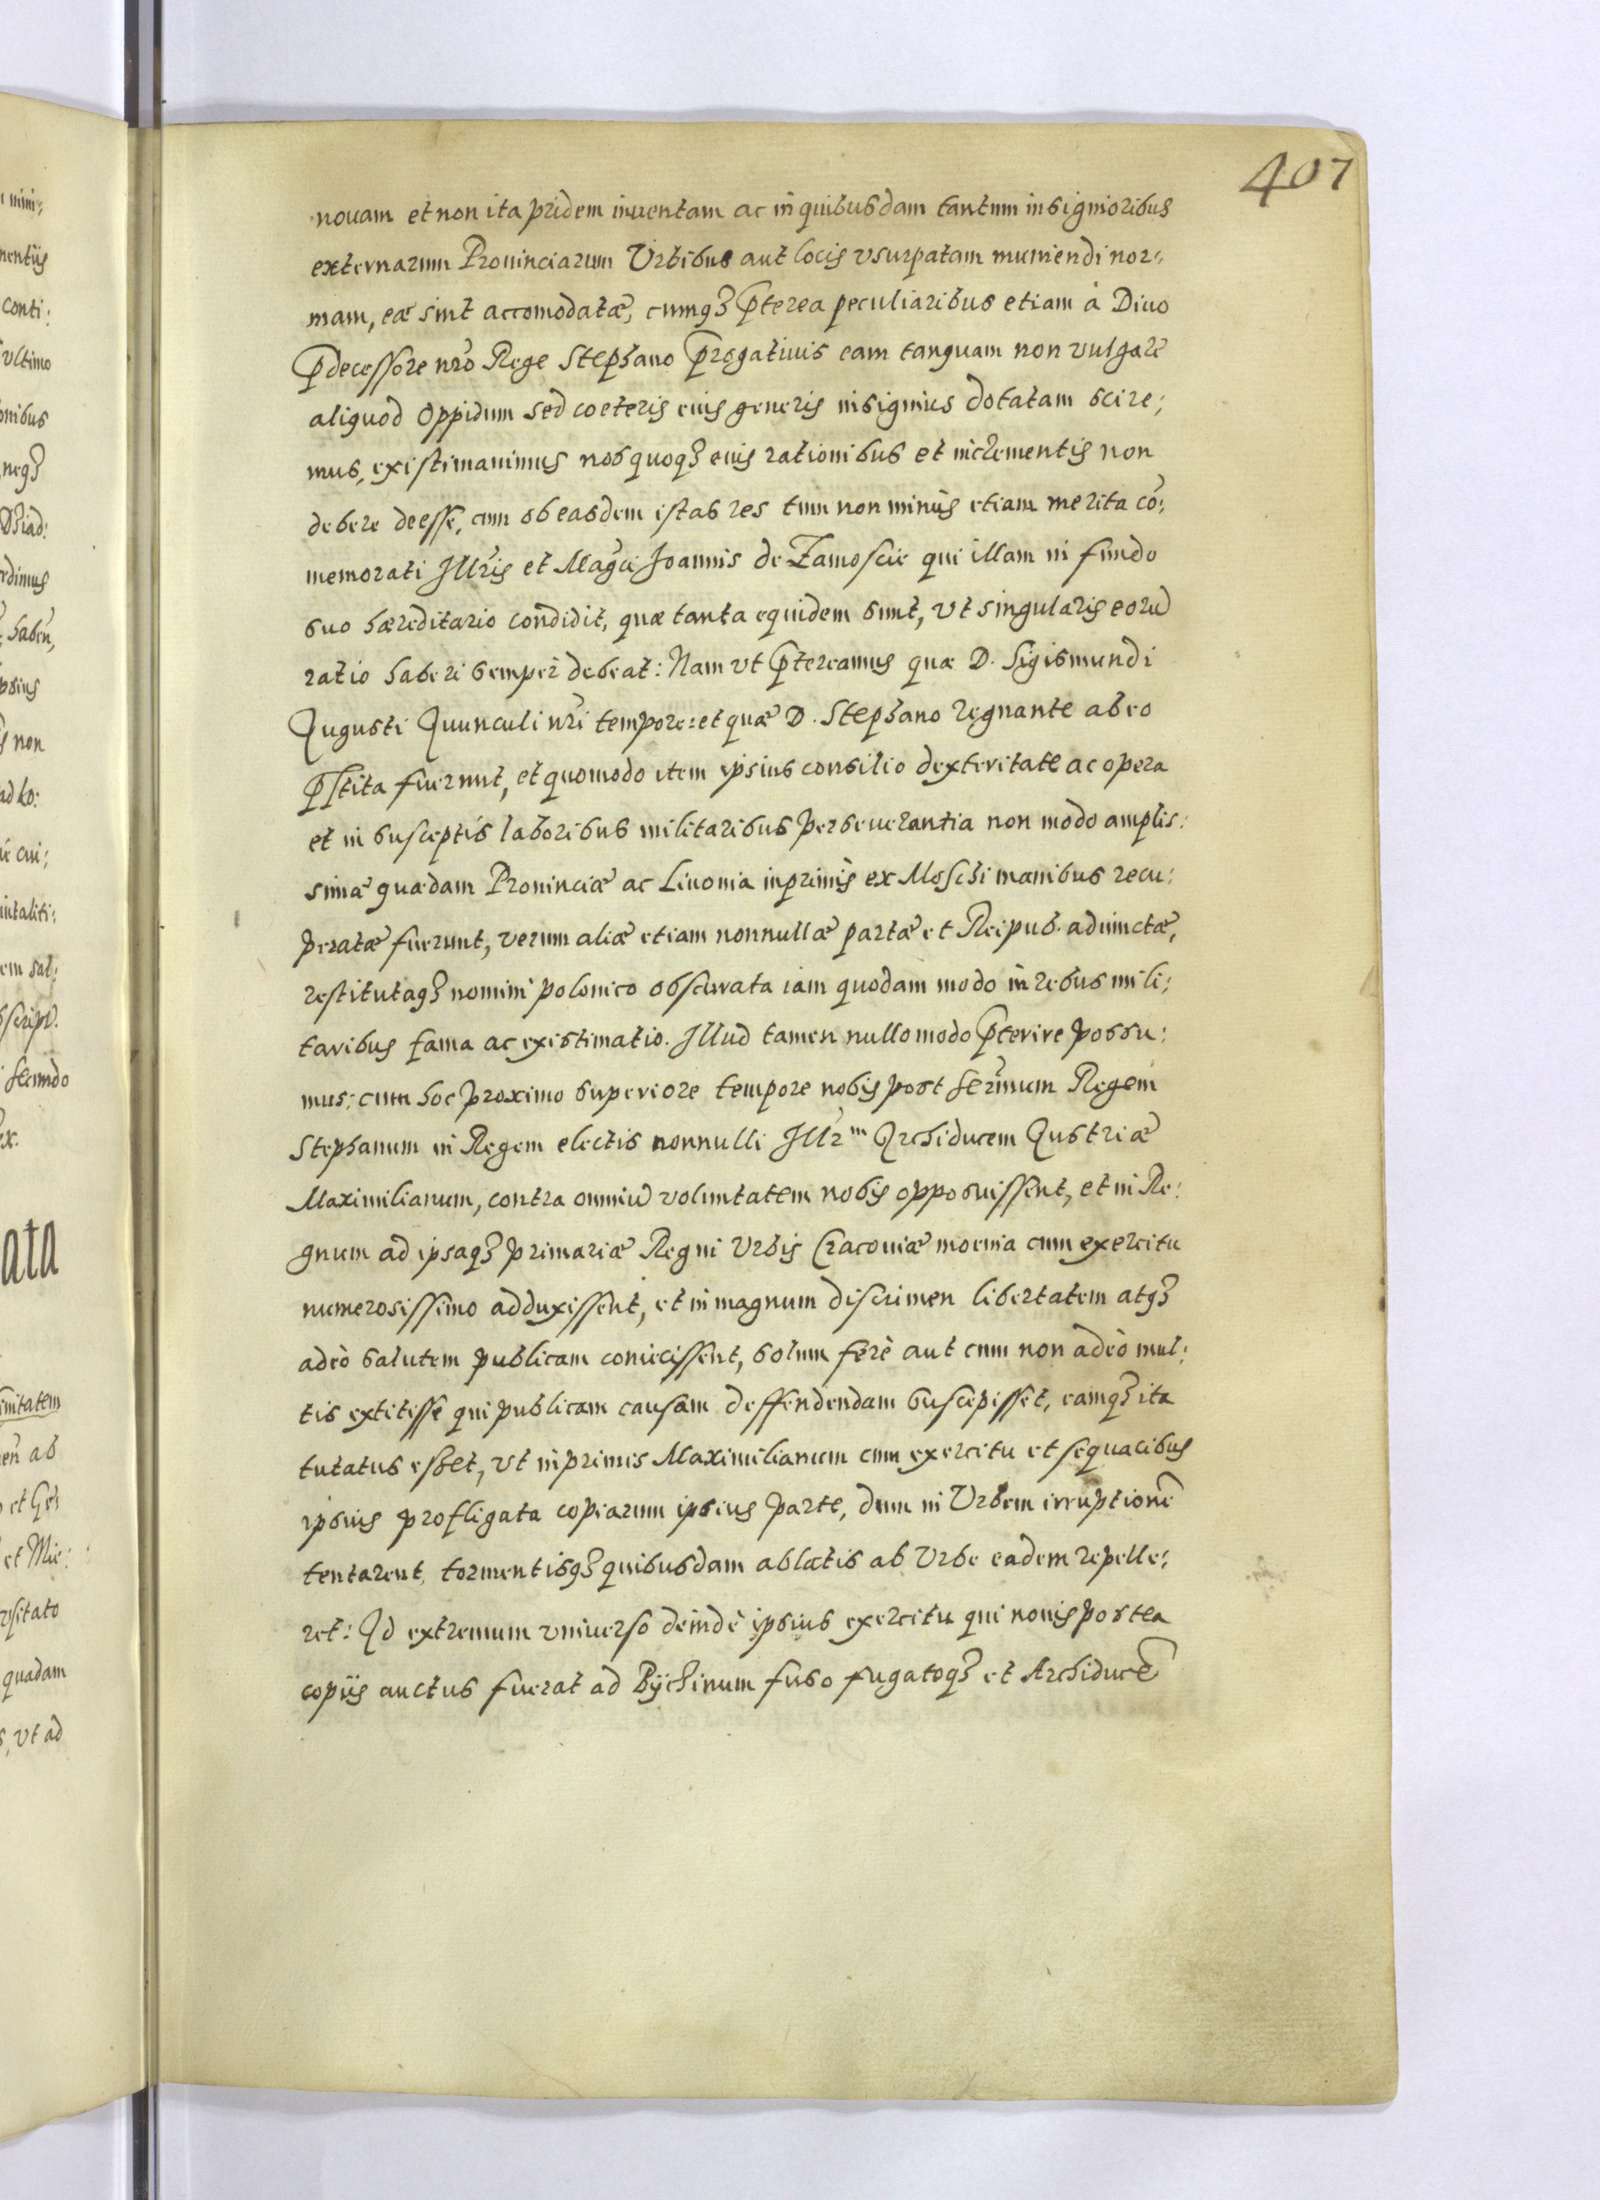 407
nouam et non ita pridem inuentam ac in quibusdam tantum insignioribus
externarum Prouinciarum Vrbibus aut locis vsurpatam muniendi nor:
mam, eæ sint accomodatæ, cumqꝫ p̃terea peculiaribus etiam à Diuo
P̃decessore nr̃o Rege Stephano P̃rogatiuis eam tanquam non vulgare
aliquod oppidum sed coeteris eius generis insignius dotatam scire:
mus, existimauimus nos quoqꝫ eius rationibus et incrementis non
debere deesse, cum ob easdem istas res tum non minùs etiam merita cõ:
memorati Illr̃is et Mag̃ci Joannis de Zamoscie qui illam in fundo
suo hæreditario condidit, quæ tanta equidem sunt, vt singularis eorũ
ratio haberi semper debeat: Nam vt p̃tereamus quæ D. Sigismundi
Augusti Auunculi nr̃i tempore: et quæ D. Stephano regnante ab eo
p̃stita fuerunt, et quomodo item ipsius consilio dexteritate ac opera
et in susceptis laboribus militaribus perseuerantia non modo amplis:
simæ quædam Prouinciæ ac Liuonia inprimis ex Moschi manibus recu:
peratæ fuerunt, verum aliæ etiam nonnullæ partæ et Reipub. adiunctæ,
restitutaqꝫ nomini polonico obscurata iam quodam modo in rebus mili:
taribus fama ac existimatio. Illud tamen nullo modo p̃terire possu:
mus: cum hoc proximo superiore tempore nobis post Ser̃mum Regem
Stephanum in Regem electis nonnulli Illr̃m Archiducem Austriæ
Maximilianum, contra omniũ voluntatem nobis opposuissent, et in Re:
gnum ad ipsaqꝫ primariæ Regni Vrbis Cracouiæ moenia cum exercitu
numerosissimo adduxissent, et in magnum discrimen libertatem atqꝫ
adeò salutem publicam coniecissent, solum ferè aut cum non adeò mul:
tis extitisse qui publicam causam deffendendam suscepisset, eamqꝫ ita
tutatus esset, vt inprimis Maximilianum cum exercitu et sequacibus
ipsius profligata copiarum ipsius parte, dum in Vrbem irruptionẽ
tentarent, tormentisqꝫ quibusdam ablatis ab Vrbe eadem repelle:
ret: Ad extremum vniuerso deindè ipsius exercitu qui nouis postea
copijs auctus fuerat ad Bÿchinum fuso fugatoqꝫ et Archiducẽ